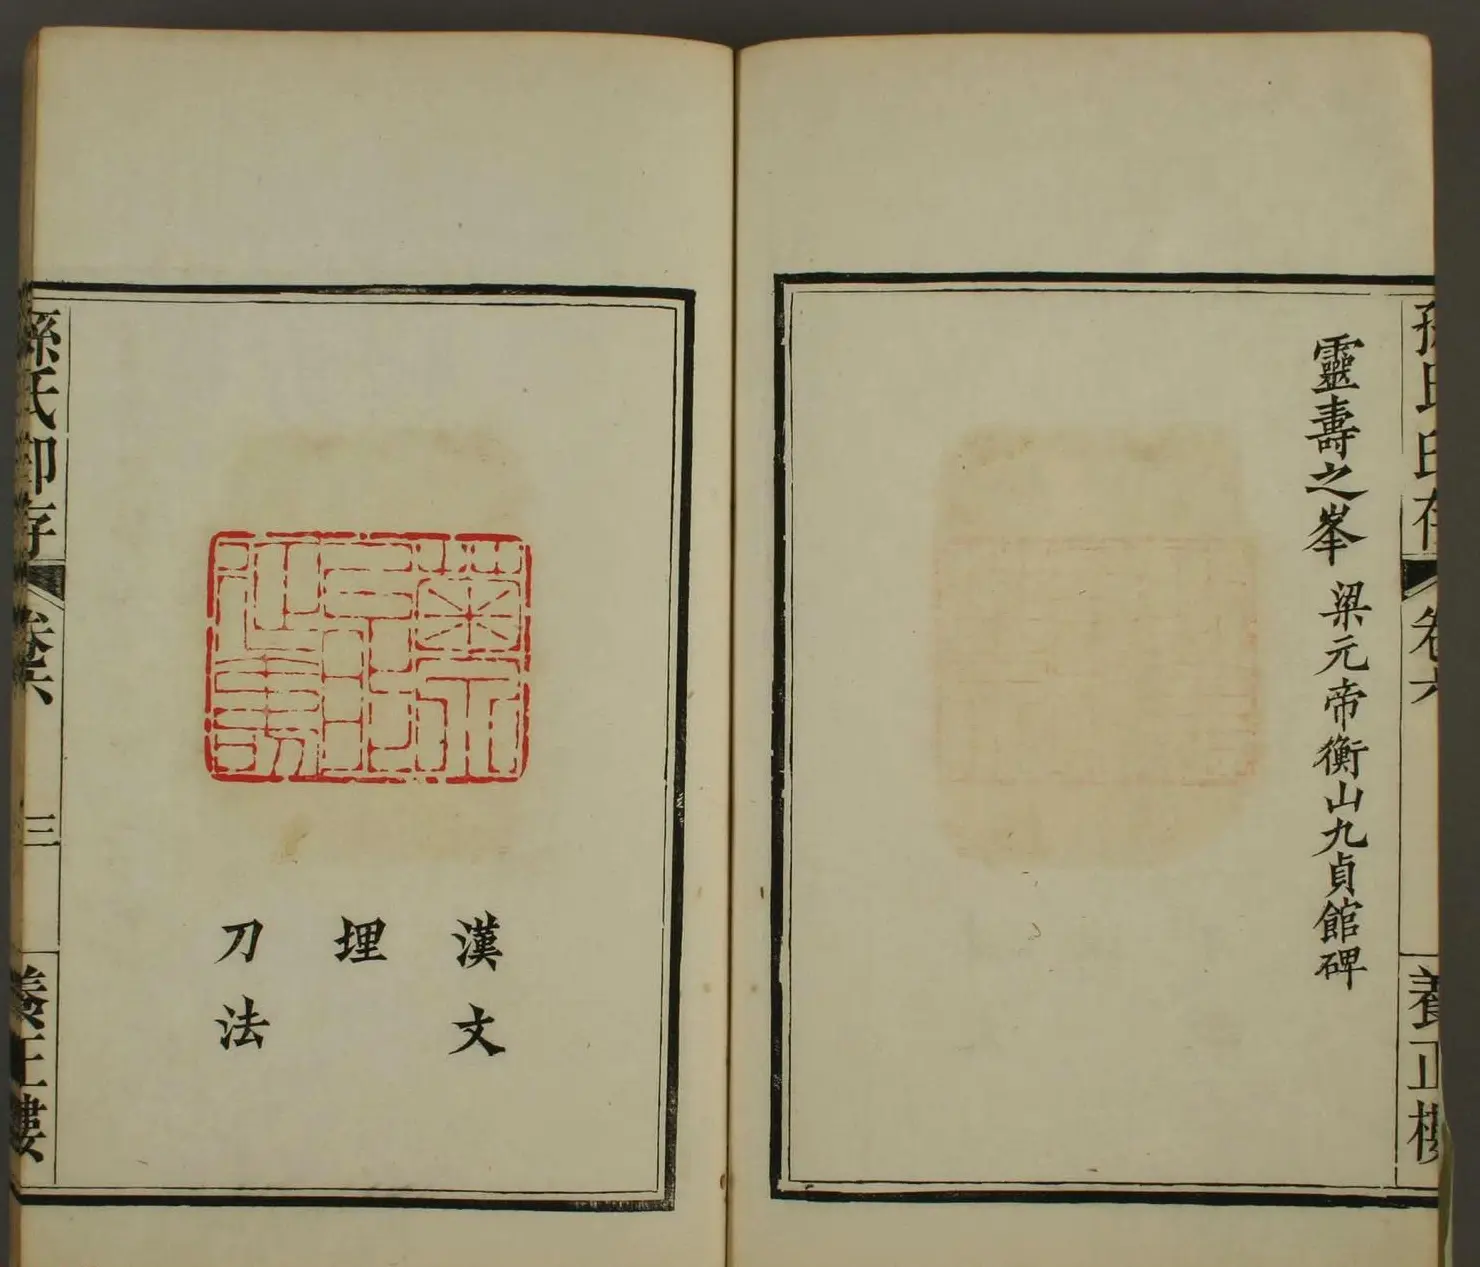 孫氏印存
卷六
養正樓
靈壽之峯 梁元帝衡山九貞館碑
漢文
埋
刀法
孫氏印存
卷六
三
養正樓